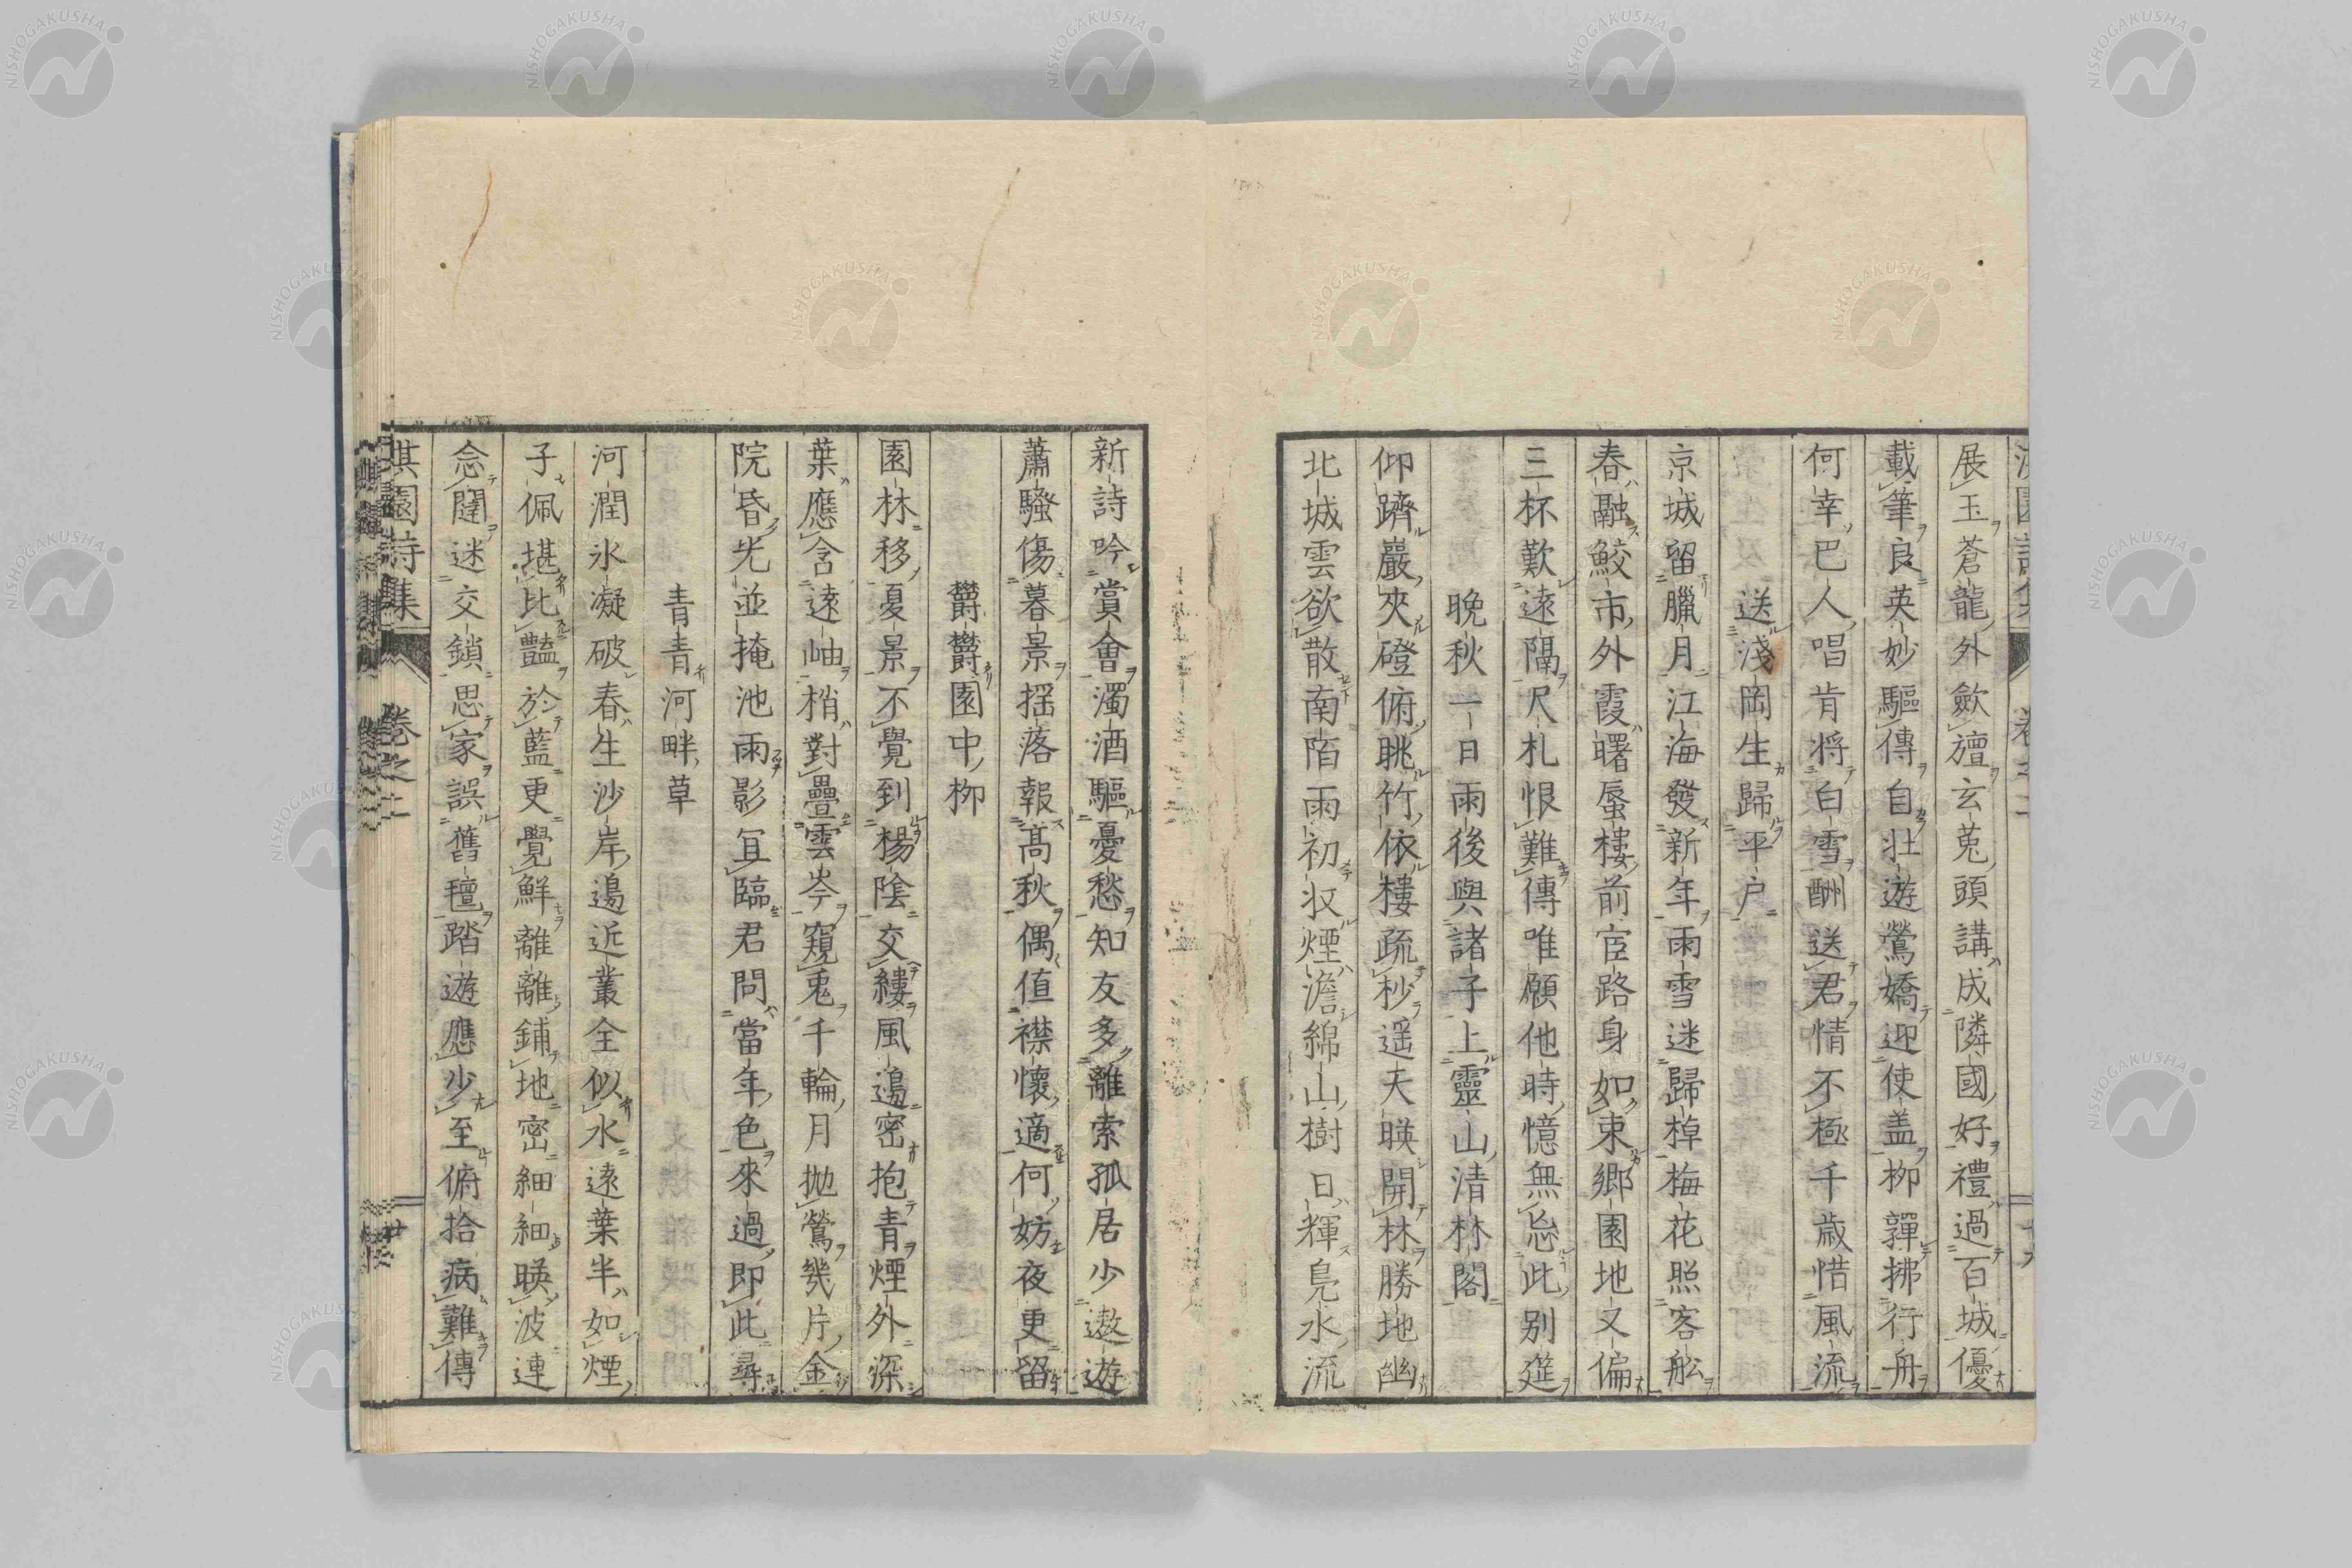 展玉蒼龍外歛襢玄菟頭講成隣國好禮過百城優
載筆良英妙驅傳自壮遊鶯嬌迎使盖柳嚲拂行舟
何幸巴人唱肯将白雪酬送君情不極千歳惜風流
送淺岡生歸平户
京城留臘月江海發新年雨雪迷歸棹梅花照客舩
春融鮫市外霞曙蜃樓前宦路身如束郷園地又偏
三杯歎遠隔尺札恨難傳唯願他時憶無忘此别筵
晩秋一日雨後與諸子上靈山清林閣
仰躋巖夾磴俯眺竹依樓疏杪遥天暎開林勝地幽
北城雲欲散南陌雨初収煙澹綿山樹日輝鳧水流
新詩吟賞會濁酒驅憂愁知友多離索孤居少遨遊
蕭騷傷暮景揺落報髙秋偶值襟懷適何妨夜更留
欝欝園中柳
園林移夏景不覺到楊陰交縷風邊密抱青煙外深
葉應含遠岫梢對疊雲岑窺兎千輪月抛鶯幾片金
院昏光並掩池雨影冝臨君問當年色來過即此尋
青青河畔草
河潤氷凝破春生沙岸邊近叢全似水遠葉半如煙
子佩堪比豔於藍更覺鮮離離鋪地密細細暎波連
念闥迷交鎖思家誤舊氊踏遊應少至俯拾病難傳
淇園詩集　卷之二